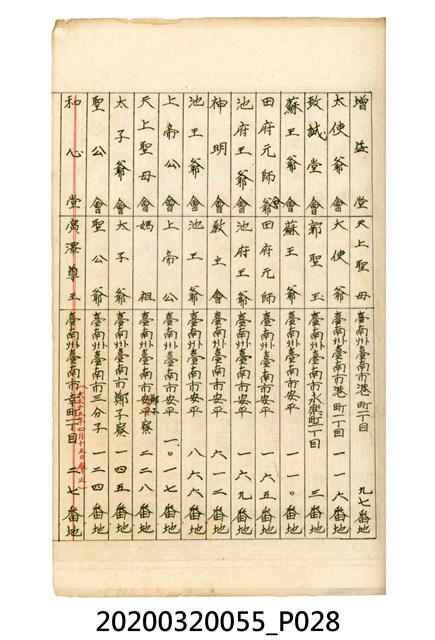 增益堂 天上聖母 臺南州臺南市港町二丁目 九七番地
太使爺會 大使爺 臺南州臺南市港町一丁目 一一六番地
致誠堂會 郭聖王 臺南州臺南市永樂町二丁目 三番地
蘇王爺會 蘇王爺 臺南州臺南市安平 一一〇番地
田府元師爺會 田府元師 臺南州臺南市安平 一六五番地
池府王爺會 池府王爺 臺南州臺南市安平 一六九番地
神明會 教主會 臺南州臺南市安平 六一二番地
池王爺會 池王爺 臺南州臺南市安平 八六六番地
上帝公會 上帝公 臺南州臺南市安平 一〇一七番地
天上聖母會 媽祖 臺南州臺南市鄭子寮 二二八番地
太子爺會 太子爺 臺南州臺南市鄭子寮 一四五番地
聖公會 聖公爺 臺南州臺南市三分子 一二四番地
和心堂 廣澤尊王 臺南州臺南市幸町一丁目 二七番地
20200320055_P028